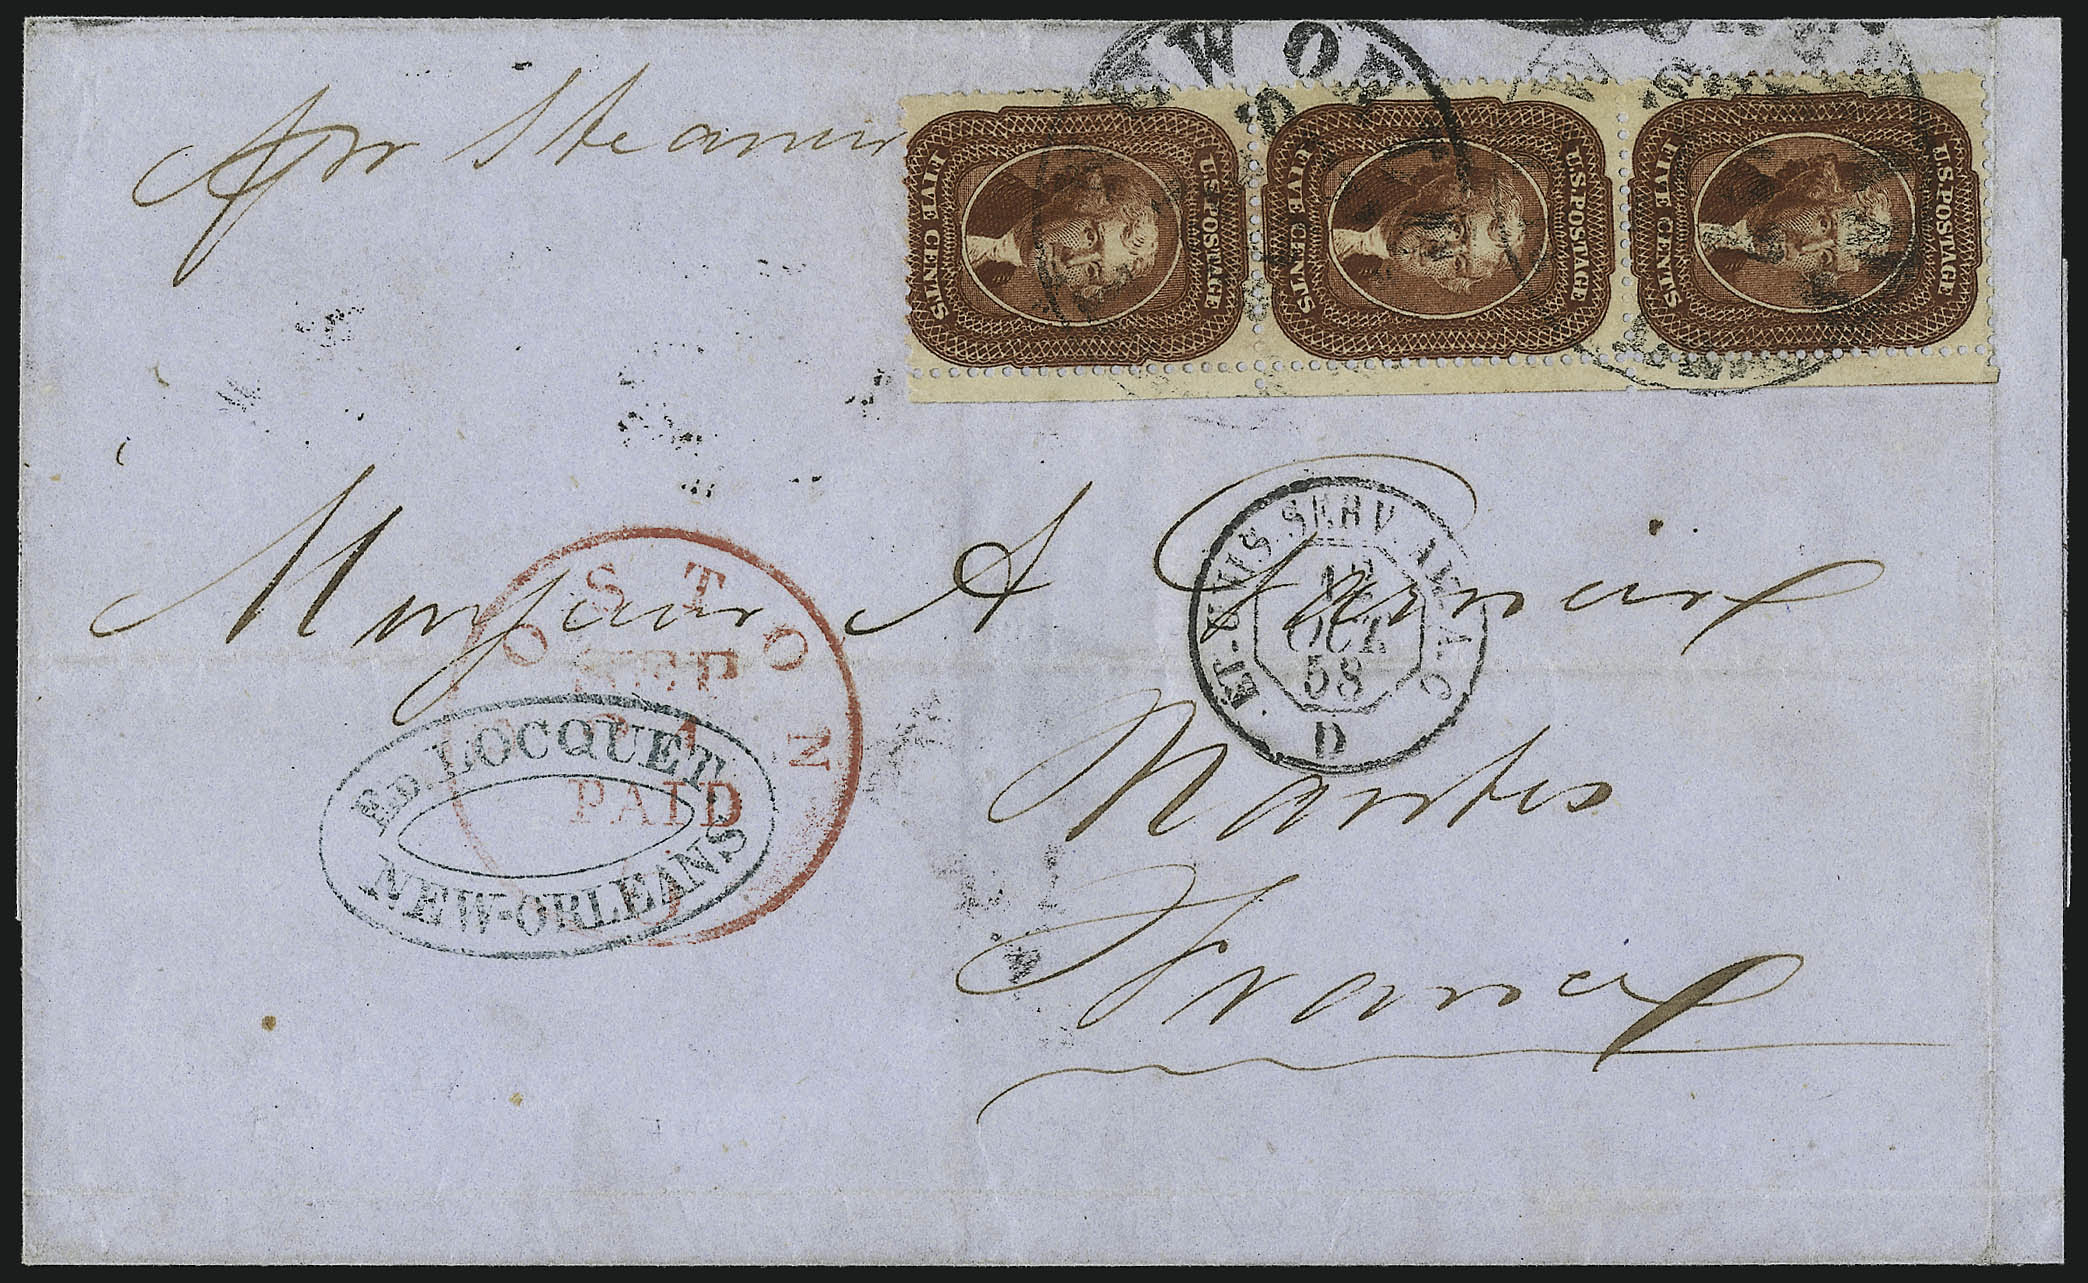 per Steamer
U.S. POSTAGE
FIVE CENTS
U.S. POSTAGE
FIVE CENTS
U.S. POSTAGE
FIVE CENTS
NEW OR
Monsieur A Garnier
Nantes
France
BOSTON
SEP
PAID
ED. LOCQUET.
NEW-ORLEANS
ET-UNIS. SERV. AM. A-C
OCT.
58
D